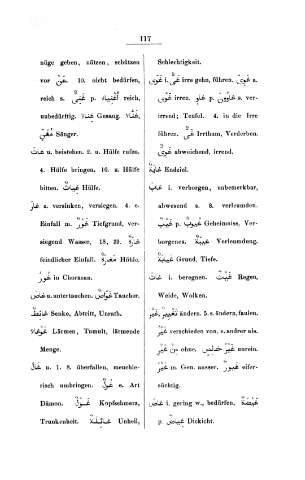 117
nüge geben, nützen, schützen
vor عَنْ. 10. nicht bedürfen,
reich s. غَنِىّ p. أَغْنِيَاء reich,
unbedürftig. غِنَاء Gesang. غِنَاء
مُغَنٍّ Sänger.
غَاثَ u. beistehen. 2. u. Hülfe rufen.
4. Hülfe bringen. 10. u. Hülfe
bitten. غِيَاث Hülfe.
غَارَ a. versinken, versiegen. 4. e.
Einfall m. غَوْر Tiefgrund, ver-
siegend Wasser, 18, 39. غَارَة
feindlicher Einfall. مَغَارَة Höhle.
غُور in Chorasan.
غَاصَ u. untertauchen. غَوَّاص Taucher.
غَائِط Senke, Abtritt, Unrath.
غَوْغَاء Lärmen, Tumult, lärmende
Menge.
غَالَ u. 1. 8. überfallen, meuchle-
risch umbringen. غُول e. Art
Dämon. غَوْل Kopfschmerz,
Trunkenheit. غَائِلَة Unheil,
Schlechtigkeit.
غَوَى i. غَىّ irre gehn, führen. غَوِىَ a.
غَوَى irren. غَاوٍ p. غَاوُونَ s. ver-
irrend; Teufel. 4. in die Irre
führen. غَىّ Irrtham, Verderben.
غَوِىّ abweichend, irrend.
غَايَة Endziel.
غَابَ i. verborgen, unbemerkbar,
abwesend s. 8. verleunden.
غَيْب p. غُيُوب Geheimniss, Ver-
borgenes. غِيبَة Verleumdung.
غَيَابَة Grund, Tiefe.
غَاثَ i. beregnen. غَيْث Regen,
Weide, Wolken.
غَيَّرَ, تَغْيِير ändern. 5. s. ändern, faulen.
غَيْر verschieden von, e. andrer als.
مِنْ غَيْر ohne. غَيْر خَالِص unrein.
غَيْر m. Gen. ausser. غَيُور eifer-
süchtig.
غَاضَ i. gering w., bedürfen. غَيْضَة
p. غِيَاض Dickicht.